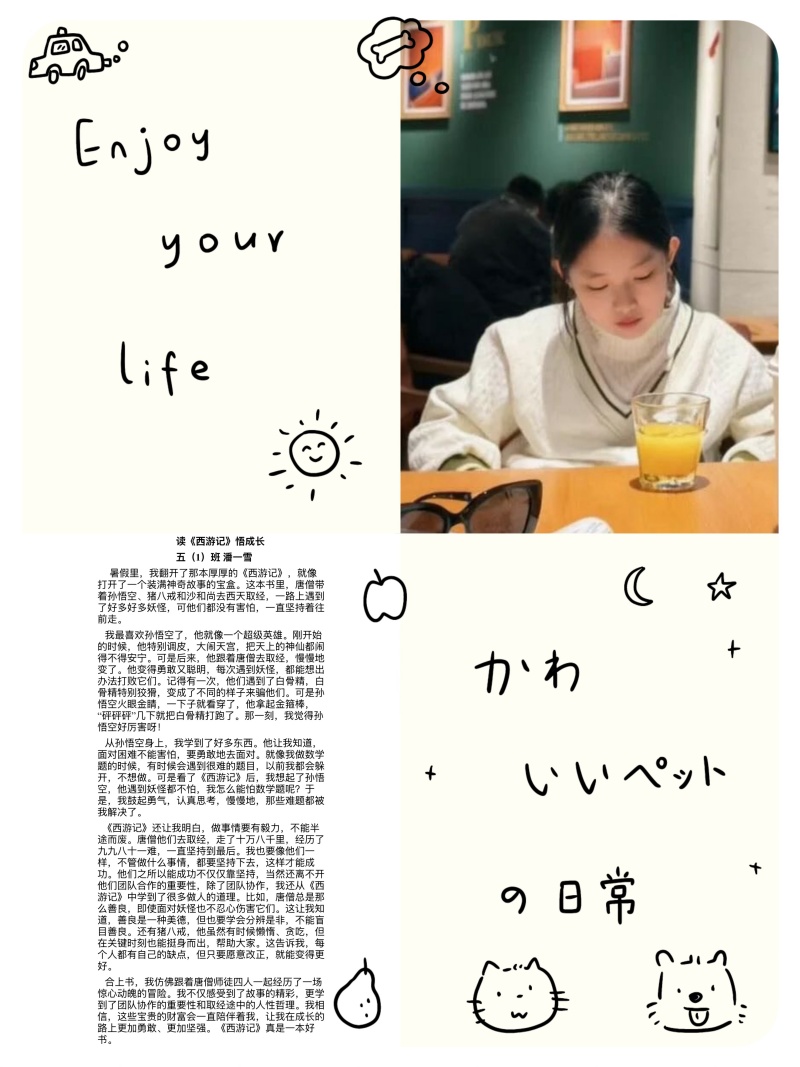 Enjoy
your
life
读《西游记》悟成长
五（1）班 潘一雪
暑假里，我翻开了那本厚厚的《西游记》，就像
打开了一个装满神奇故事的宝盒。这本书里，唐僧带
着孙悟空、猪八戒和沙和尚去西天取经，一路上遇到
了好多好多妖怪，可他们都没有害怕，一直坚持着往
前走。
我最喜欢孙悟空了，他就像一个超级英雄。刚开始
的时候，他特别调皮，大闹天宫，把天上的神仙都闹
得不得安宁。可是后来，他跟着唐僧去取经，慢慢地
变了。他变得勇敢又聪明，每次遇到妖怪，都能想出
办法打败它们。记得有一次，他们遇到了白骨精，白
骨精特别狡猾，变成了不同的样子来骗他们。可是孙
悟空火眼金睛，一下子就看穿了，他拿起金箍棒，
“砰砰砰”几下就把白骨精打跑了。那一刻，我觉得孙
悟空好厉害呀！
从孙悟空身上，我学到了好多东西。他让我知道，
面对困难不能害怕，要勇敢地去面对。就像我做数学
题的时候，有时候会遇到很难的题目，以前我都会躲
开，不想做。可是看了《西游记》后，我想起了孙悟
空，他遇到妖怪都不怕，我怎么能怕数学题呢？于
是，我鼓起勇气，认真思考，慢慢地，那些难题都被
我解决了。
《西游记》还让我明白，做事情要有毅力，不能半
途而废。唐僧他们去取经，走了十万八千里，经历了
九九八十一难，一直坚持到最后。我也要像他们一
样，不管做什么事情，都要坚持下去，这样才能成
功。他们之所以能成功不仅仅靠坚持，当然还离不开
他们团队合作的重要性，除了团队协作，我还从《西
游记》中学到了很多做人的道理。比如，唐僧总是那
么善良，即使面对妖怪也不忍心伤害它们。这让我知
道，善良是一种美德，但也要学会分辨是非，不能盲
目善良。还有猪八戒，他虽然有时候懒惰、贪吃，但
在关键时刻也能挺身而出，帮助大家。这告诉我，每
个人都有自己的缺点，但只要愿意改正，就能变得更
好。
合上书，我仿佛跟着唐僧师徒四人一起经历了一场
惊心动魄的冒险。我不仅感受到了故事的精彩，更学
到了团队协作的重要性和取经途中的人性哲理。我相
信，这些宝贵的财富会一直陪伴着我，让我在成长的
路上更加勇敢、更加坚强。《西游记》真是一本好
书。
かわ
いいペット
の日常